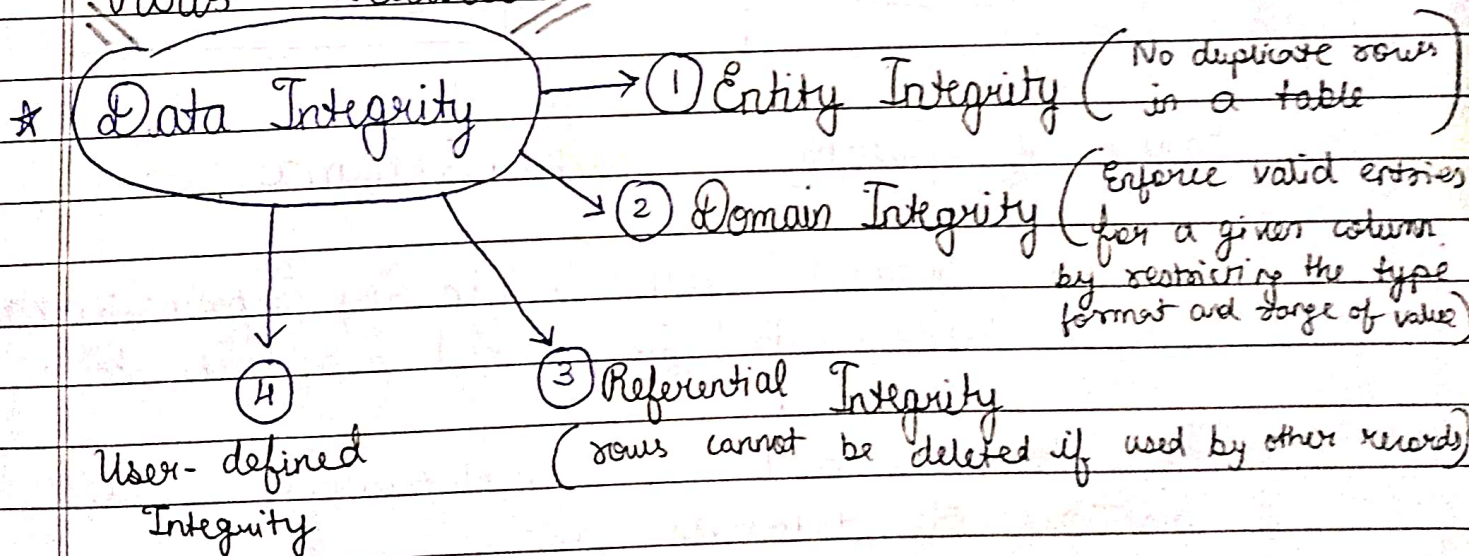 ☆ Data Integrity → ① Entity Integrity (No duplicate rows
in a table)
② Domain Integrity (Enforce valid entries
for a given column
by restricting the type
format and range of value)
③ Referential Integrity
(rows cannot be deleted if used by other records)
④
User-defined
Integrity